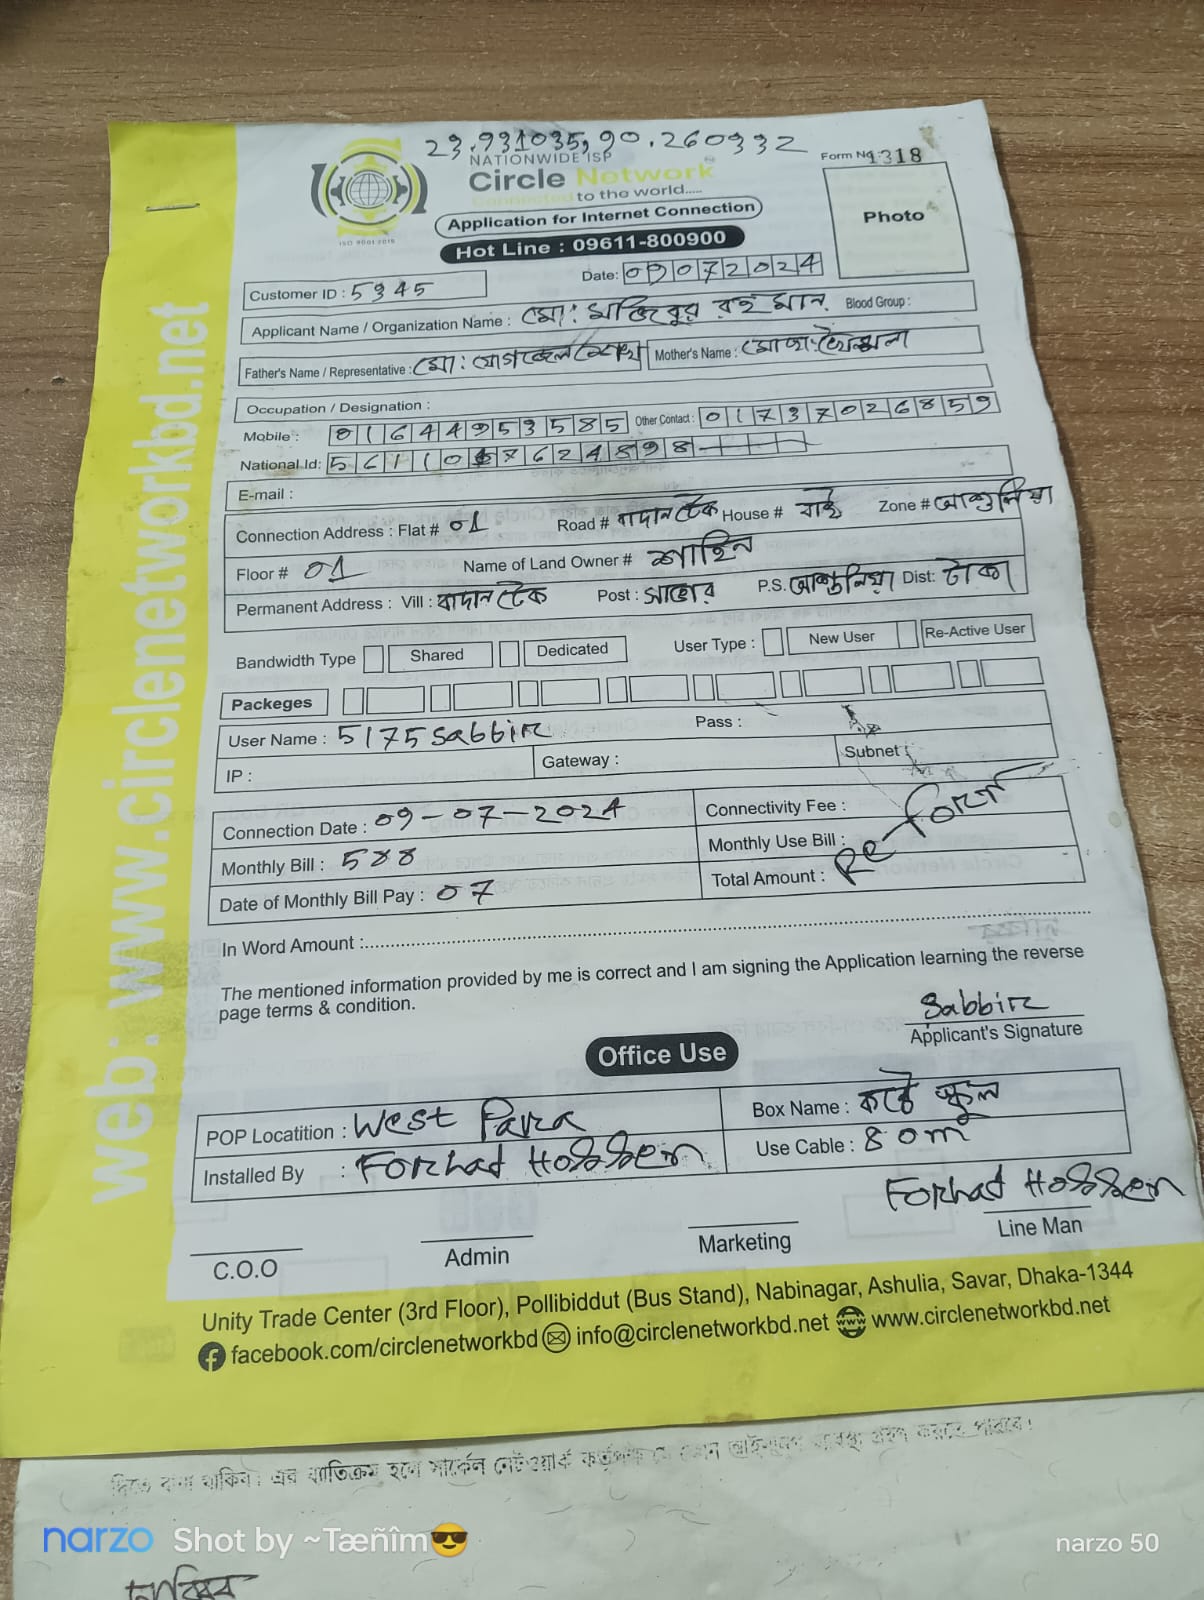 23.931035, 90.260332
NATIONWIDE ISP
Circle Network
Connected to the world.....
ISO 9001:2015
Form No 1318
Photo
Application for Internet Connection
Hot Line : 09611-800900
Date: 09072024
Customer ID : 5345
Applicant Name / Organization Name : মো: মজিবুর রহমান Blood Group :
Father's Name / Representative : মো: Mother's Name : মোছা:
Occupation / Designation :
Mobile : 01644953585 Other Contact : 01737026859
National Id:
E-mail :
Connection Address : Flat # 01 Road # বাদানটেক House # বাই Zone # আশুলিয়া
Floor # 01 Name of Land Owner # শাহিন
Permanent Address : Vill : বাদানটেক Post : সাভার P.S. আশুলিয়া Dist: ঢাকা
Bandwidth Type Shared Dedicated User Type : New User Re-Active User
Packeges
User Name : 5175sabbir Pass :
IP : Gateway : Subnet :
Connection Date : 09-07-2024 Connectivity Fee :
Monthly Bill : 588 Monthly Use Bill :
Date of Monthly Bill Pay : 07 Total Amount :
Re-fort
In Word Amount :
The mentioned information provided by me is correct and I am signing the Application learning the reverse
page terms & condition.
Sabbir
Applicant's Signature
Office Use
POP Locatition : West Para Box Name : স্কুল
Installed By : Forhad Hossen Use Cable : 80m
Forhad Hossen
C.O.O Admin Marketing Line Man
Unity Trade Center (3rd Floor), Pollibiddut (Bus Stand), Nabinagar, Ashulia, Savar, Dhaka-1344
facebook.com/circlenetworkbd info@circlenetworkbd.net www.circlenetworkbd.net
web: www.circlenetworkbd.net
দিতে বাধ্য থাকিব। এর ব্যতিক্রম হলে সার্কেল নেটওয়ার্ক কর্তৃপক্ষ যে কোন আইনানুগ ব্যবস্থা গ্রহণ করতে পারবে।
narzo Shot by ~Tæñîm😎 narzo 50